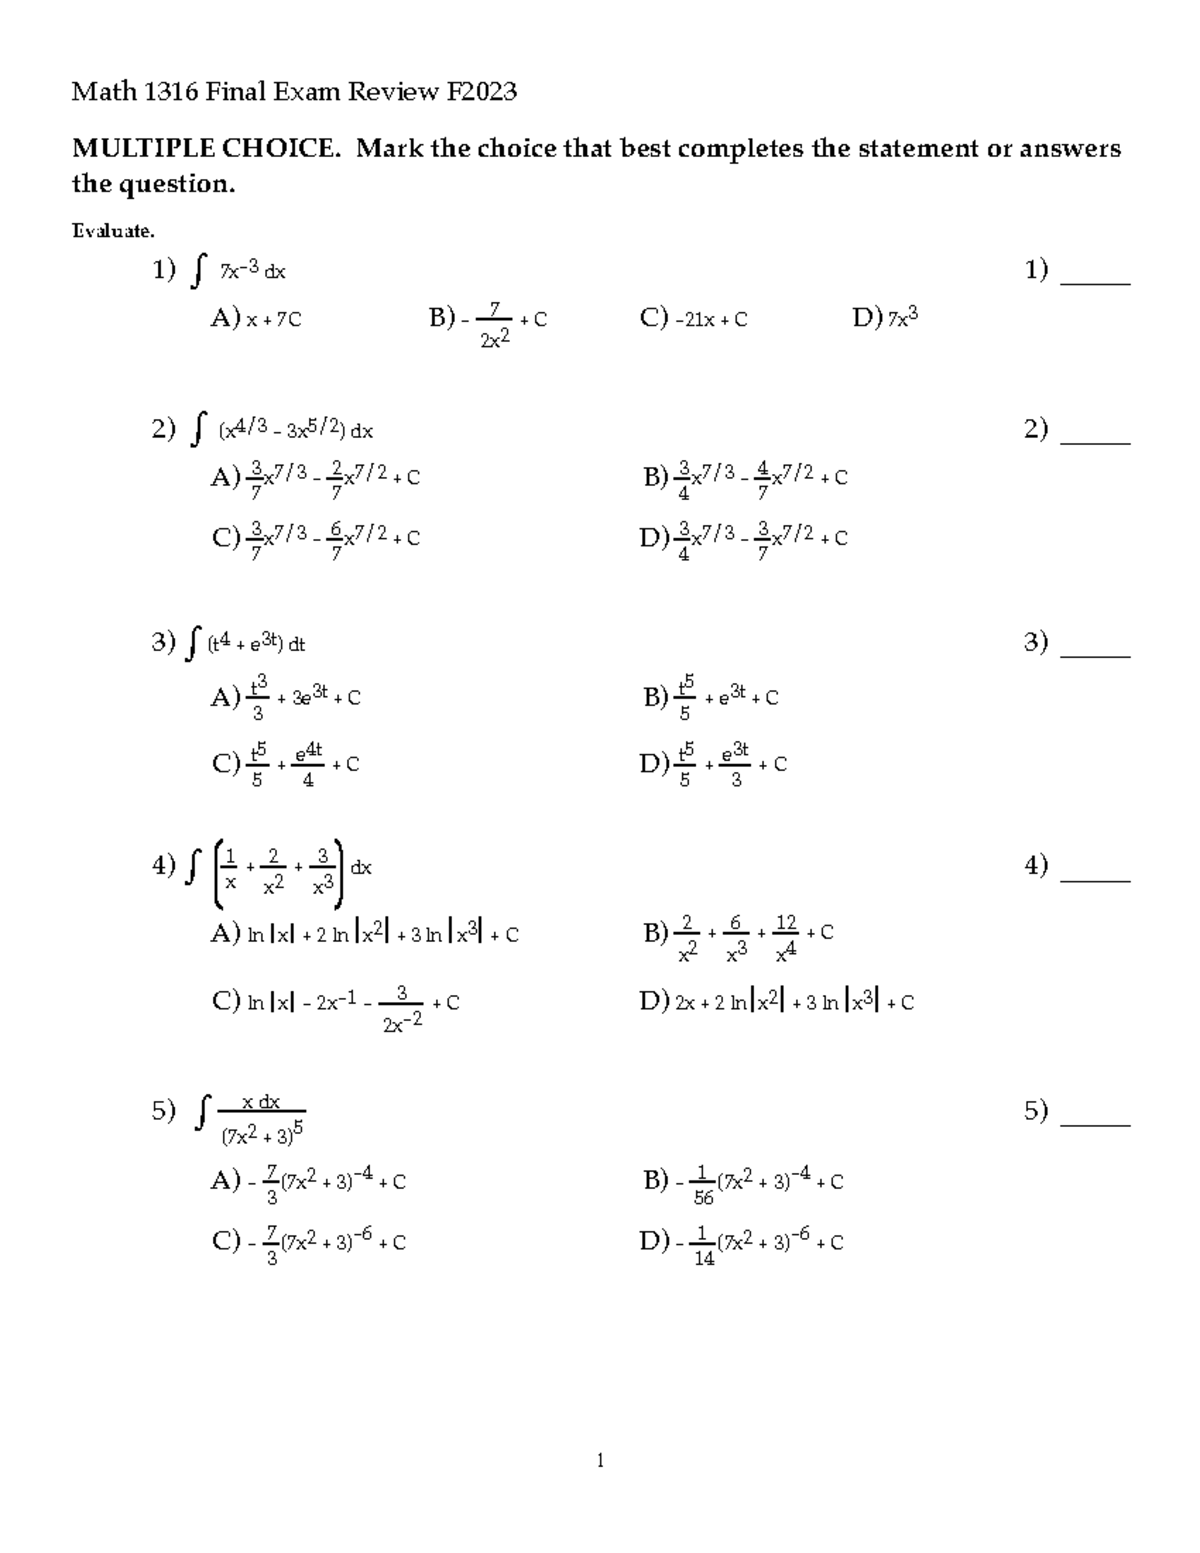 Math 1316 Final Exam Review F2023
MULTIPLE CHOICE. Mark the choice that best completes the statement or answers
the question.
Evaluate.
1) ∫ 7x⁻³ dx 1) _____
A) x + 7C B) - 7/2x² + C C) -21x + C D) 7x³
2) ∫ (x^4/3 - 3x^5/2) dx 2) _____
A) 3/7 x^7/3 - 2/7 x^7/2 + C B) 3/4 x^7/3 - 4/7 x^7/2 + C
C) 3/7 x^7/3 - 6/7 x^7/2 + C D) 3/4 x^7/3 - 3/7 x^7/2 + C
3) ∫ (t⁴ + e^3t) dt 3) _____
A) t³/3 + 3e^3t + C B) t⁵/5 + e^3t + C
C) t⁵/5 + e^4t/4 + C D) t⁵/5 + e^3t/3 + C
4) ∫ (1/x + 2/x² + 3/x³) dx 4) _____
A) ln |x| + 2 ln |x²| + 3 ln |x³| + C B) 2/x² + 6/x³ + 12/x⁴ + C
C) ln |x| - 2x⁻¹ - 3/2x⁻² + C D) 2x + 2 ln |x²| + 3 ln |x³| + C
5) ∫ x dx/(7x² + 3)⁵ 5) _____
A) - 7/3 (7x² + 3)⁻⁴ + C B) - 1/56 (7x² + 3)⁻⁴ + C
C) - 7/3 (7x² + 3)⁻⁶ + C D) - 1/14 (7x² + 3)⁻⁶ + C
1